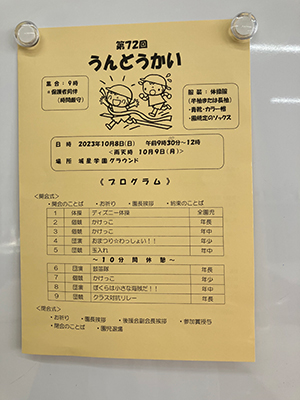 第72回
うんどうかい
集合：9時
＊保護者同伴
（時間厳守）
服装：体操服
（半袖または長袖）
・青靴・カラー帽
・園規定のソックス
日時 2023年10月8日（日） 午前9時30分～12時
＜雨天時 10月9日（月）＞
場所 城星学園グラウンド
《プログラム》
＜開会式＞
・開会のことば ・お祈り ・園長挨拶 ・約束のことば
1 体操 ディズニー体操 全園児
2 個競 かけっこ 年長
3 個競 かけっこ 年中
4 団演 おまつり☆わっしょい！！ 年少
5 団競 玉入れ 年中
～10分間休憩～
6 団演 鼓笛隊 年長
7 個競 かけっこ 年少
8 団演 ぼくらは小さな海賊だ！！ 年中
9 団競 クラス対抗リレー 年長
＜閉会式＞
・お祈り ・園長挨拶 ・後援会副会長挨拶 ・参加賞授与
・閉会のことば ・園児退場